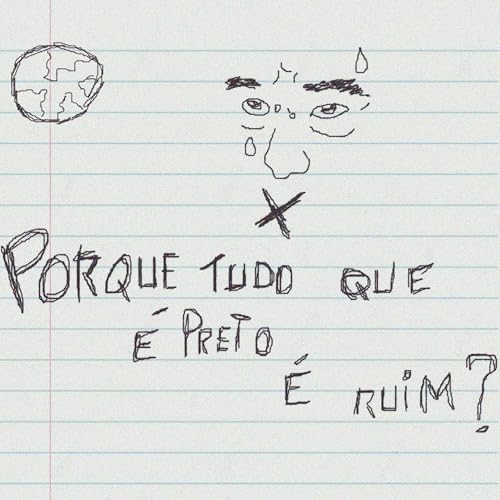 PORQUE TUDO QUE
É PRETO
É RUIM?